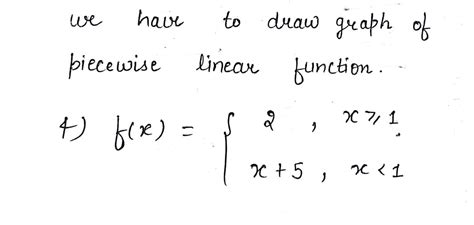 we have to draw graph of
piecewise linear function.
4) f(x) = { 2 , x ⩾ 1
x + 5 , x < 1